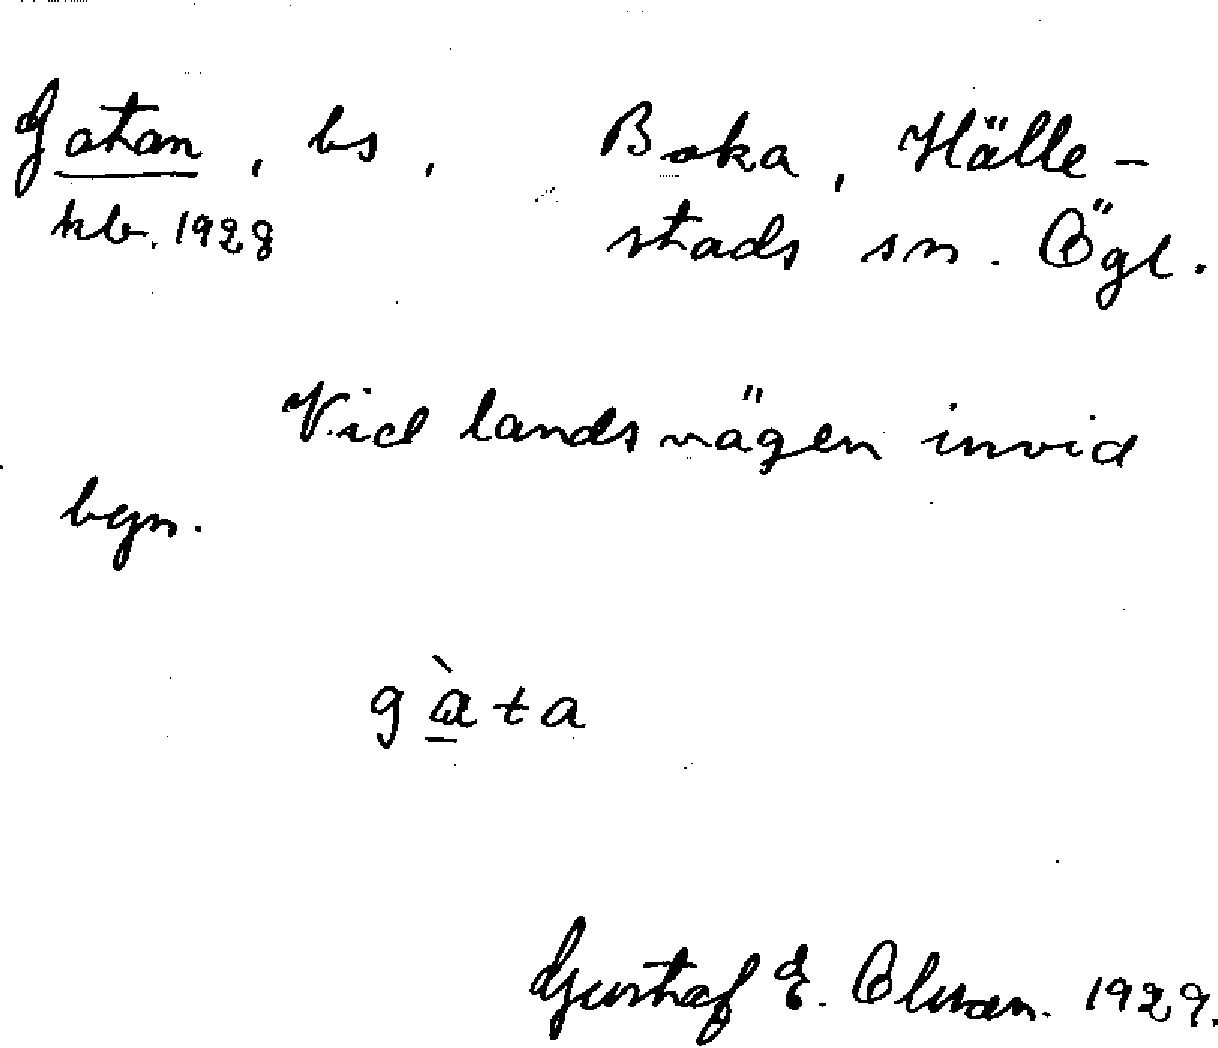 Gatan, bs, Boka, Hälle-
kb. 1928 stads sn. Ögl.
Vid landsvägen invid
bgn.
gàta
Gustaf E. Olsson. 1929.